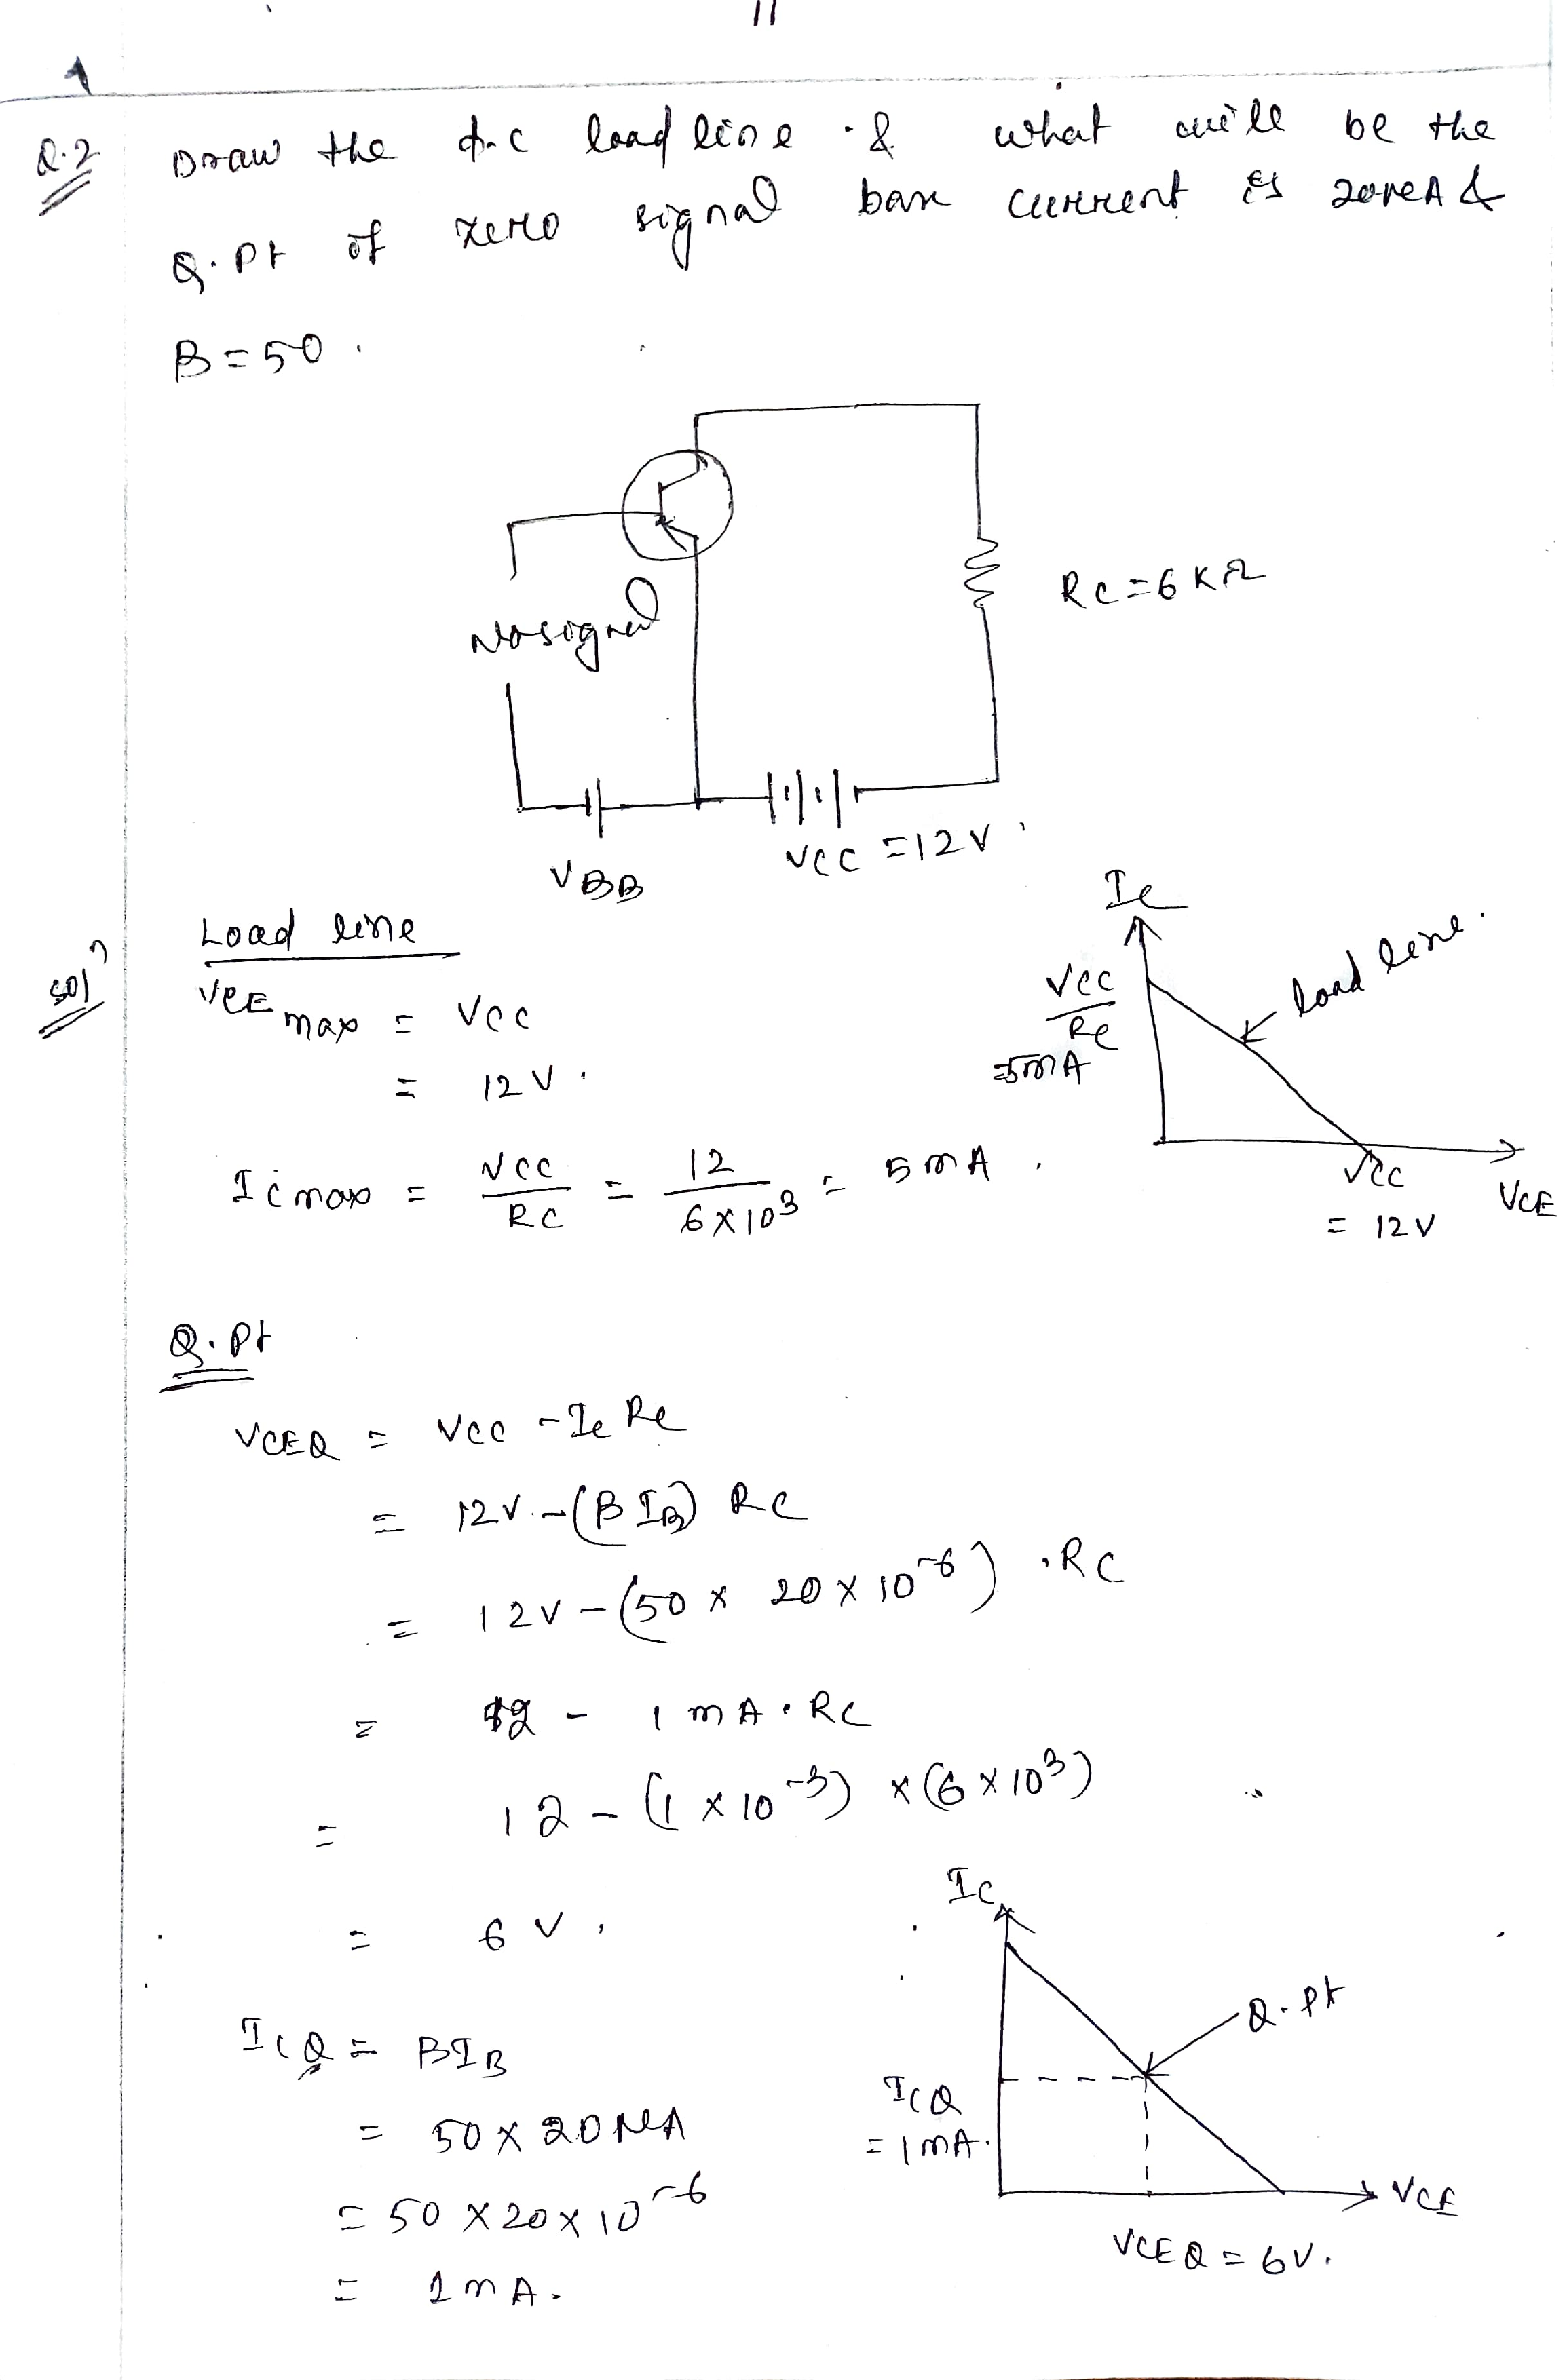 11
Q.2 Draw the d.c load line & what will be the
Q.Pt of zero signal base current is 20µA &
β = 50.
No signal
RC = 6 KΩ
VBB
VCC = 12V
Soln
Load line
VCE max = VCC
= 12V.
IC max = VCC / RC = 12 / 6×10³ = 5 mA.
IC
VCC / RC
= 5mA
load line.
VCC
= 12V
VCE
Q.Pt
VCEQ = VCC - IC RC
= 12V - (β IB) RC
= 12V - (50 × 20 × 10⁻⁶) . RC
= 12 - 1 mA . RC
= 12 - (1 × 10⁻³) × (6 × 10³)
= 6 V.
ICQ = βIB
= 50 × 20 µA
= 50 × 20 × 10⁻⁶
= 1 mA.
IC
Q.Pt
ICQ
= 1mA.
VCE
VCEQ = 6V.